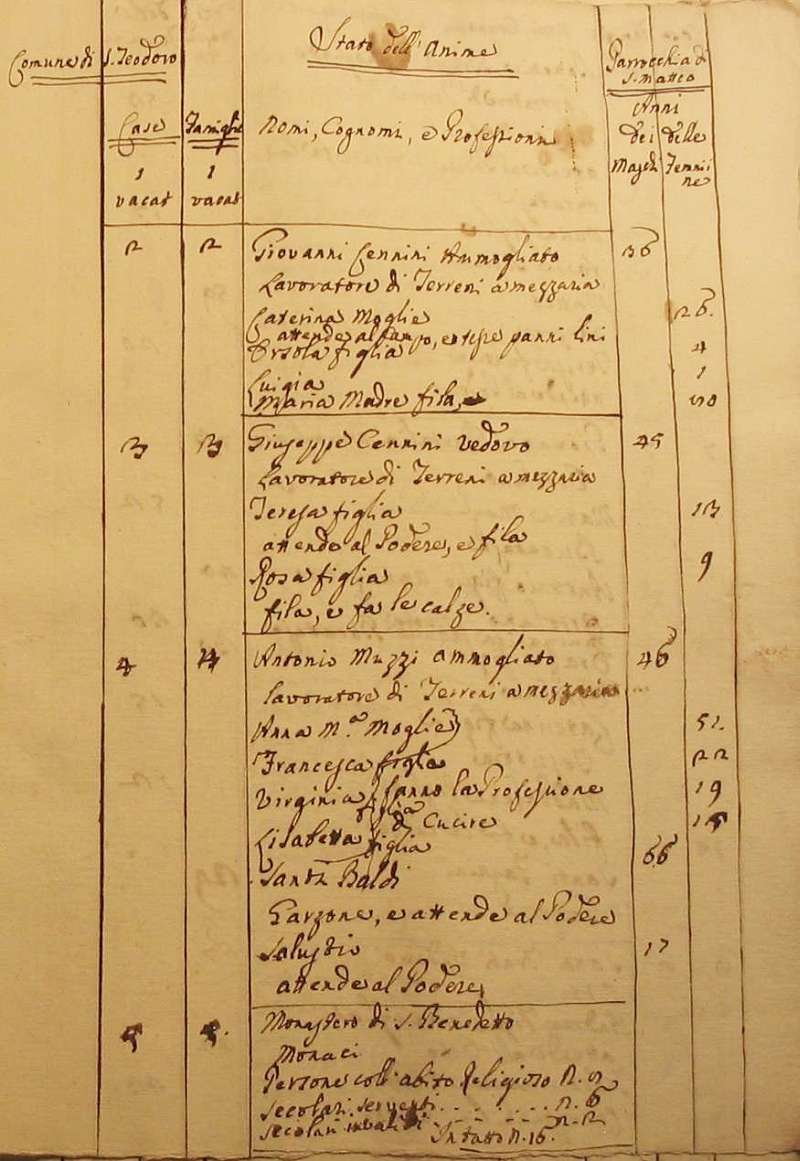 Comune di S. Teodoro
Stato dell'Anime
Parrocchia di
S. Matteo
Case
Famiglie
Nomi, Cognomi, e Professioni
Anni
dei delle
Maschi Femmine
1 1
vacat vacat
2 2 Giovanni Cennini Ammogliato 36
Lavoratore di Terreni a mezzaria
Caterina Moglie 26.
attende al campo, e tesse panni lini
Orsola figlia 4
Luigia 1
Maria Madre fila, 50
3 3 Giuseppe Cennini Vedovo 45
Lavoratore di Terreni a mezzaria
Teresa figlia 13
attende al Podere, e fila
Rosa figlia 9
fila, e fa le calze.
4 4 Antonio Muzzi ammogliato 46
lavoratore di Terreni a mezzaria
Anna M.a Moglie 51.
Francesca figlia 22
Virginia figlia fanno la Professione 19
di Cucire
Lisabetta figlia 15
Santi Baldi 66
Garzone, e attende al Podere
Salustio 17
attende al Podere,
5 5. Monastero di S. Benedetto
Monaci
Persone coll'abito Religioso N.
Secolari serventi . . . . . . . N. 6
Secolari . . . . . N. 2
In tutto N. 16.